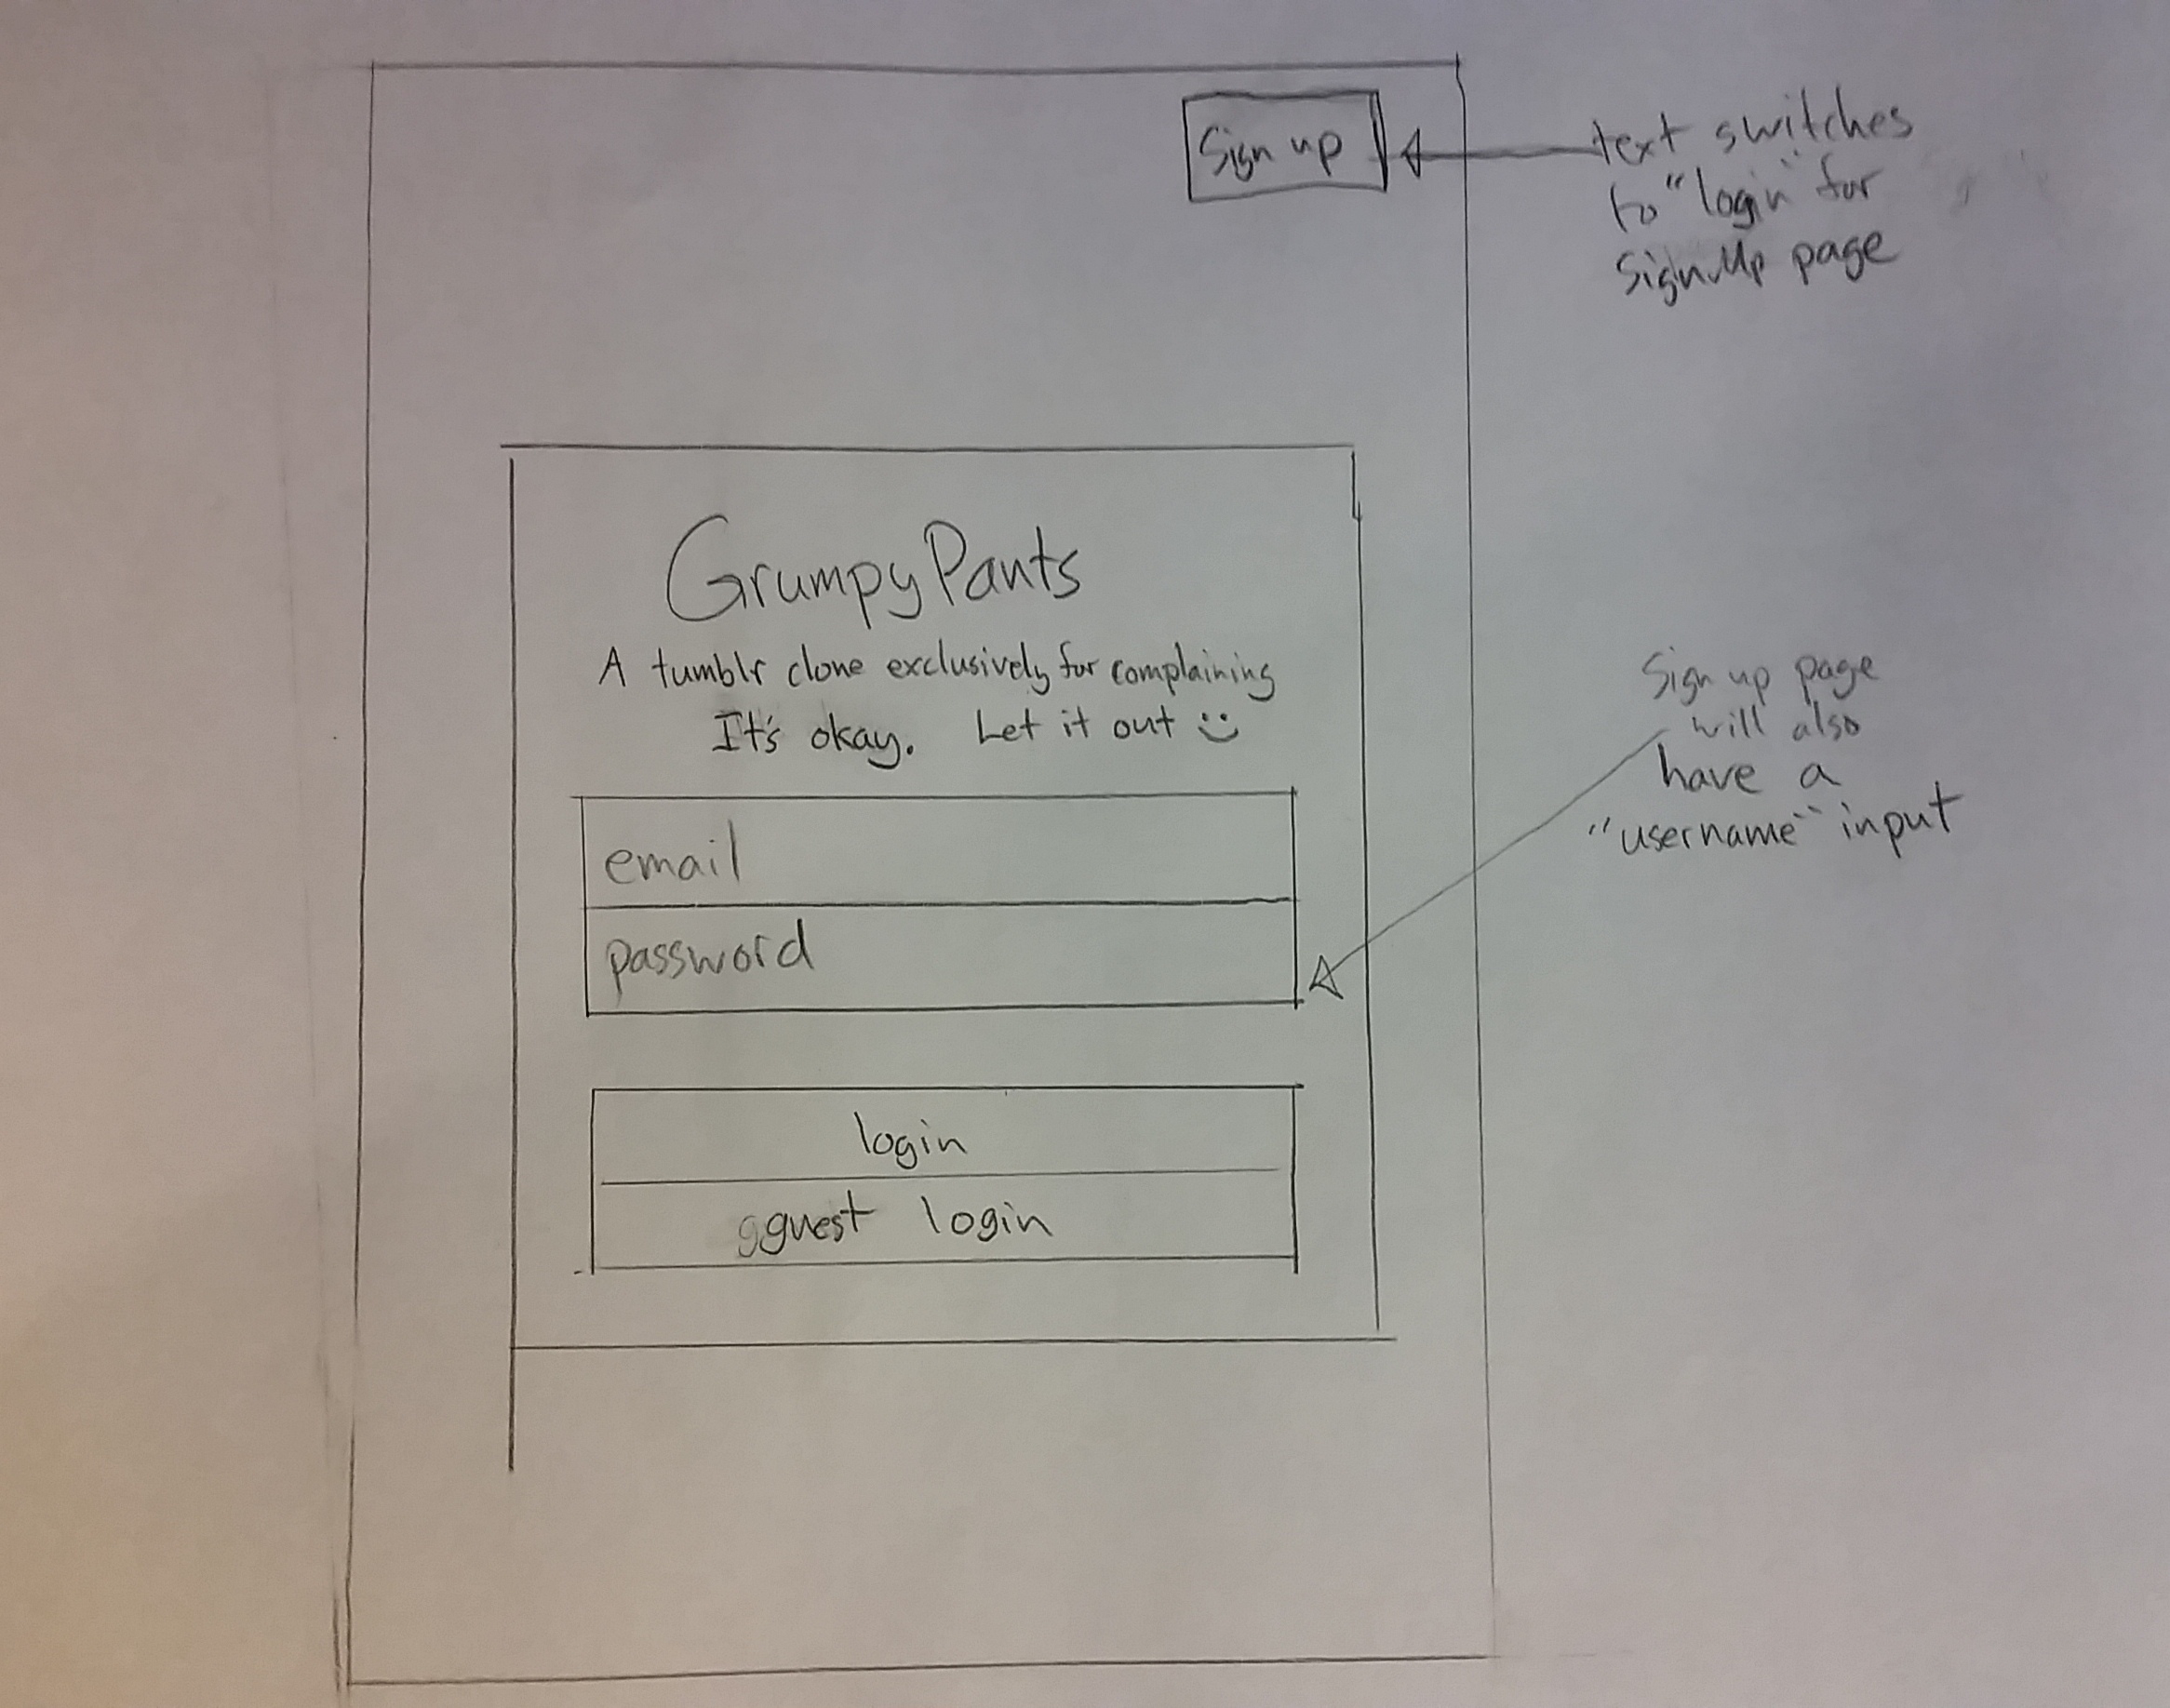 Sign up
text switches
to "login" for
SignUp page
GrumpyPants
A tumblr clone exclusively for complaining
It's okay. Let it out :)
Sign up page
will also
have a
"username" input
email
password
login
gguest login